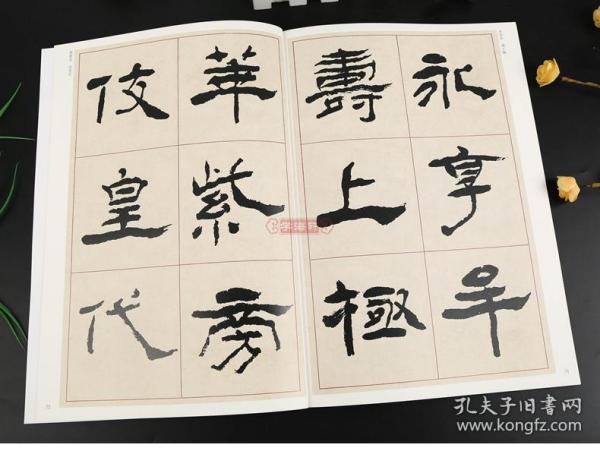 永享牟
壽上極
華紫旁
伎皇代
孔夫子旧书网
www.kongfz.com